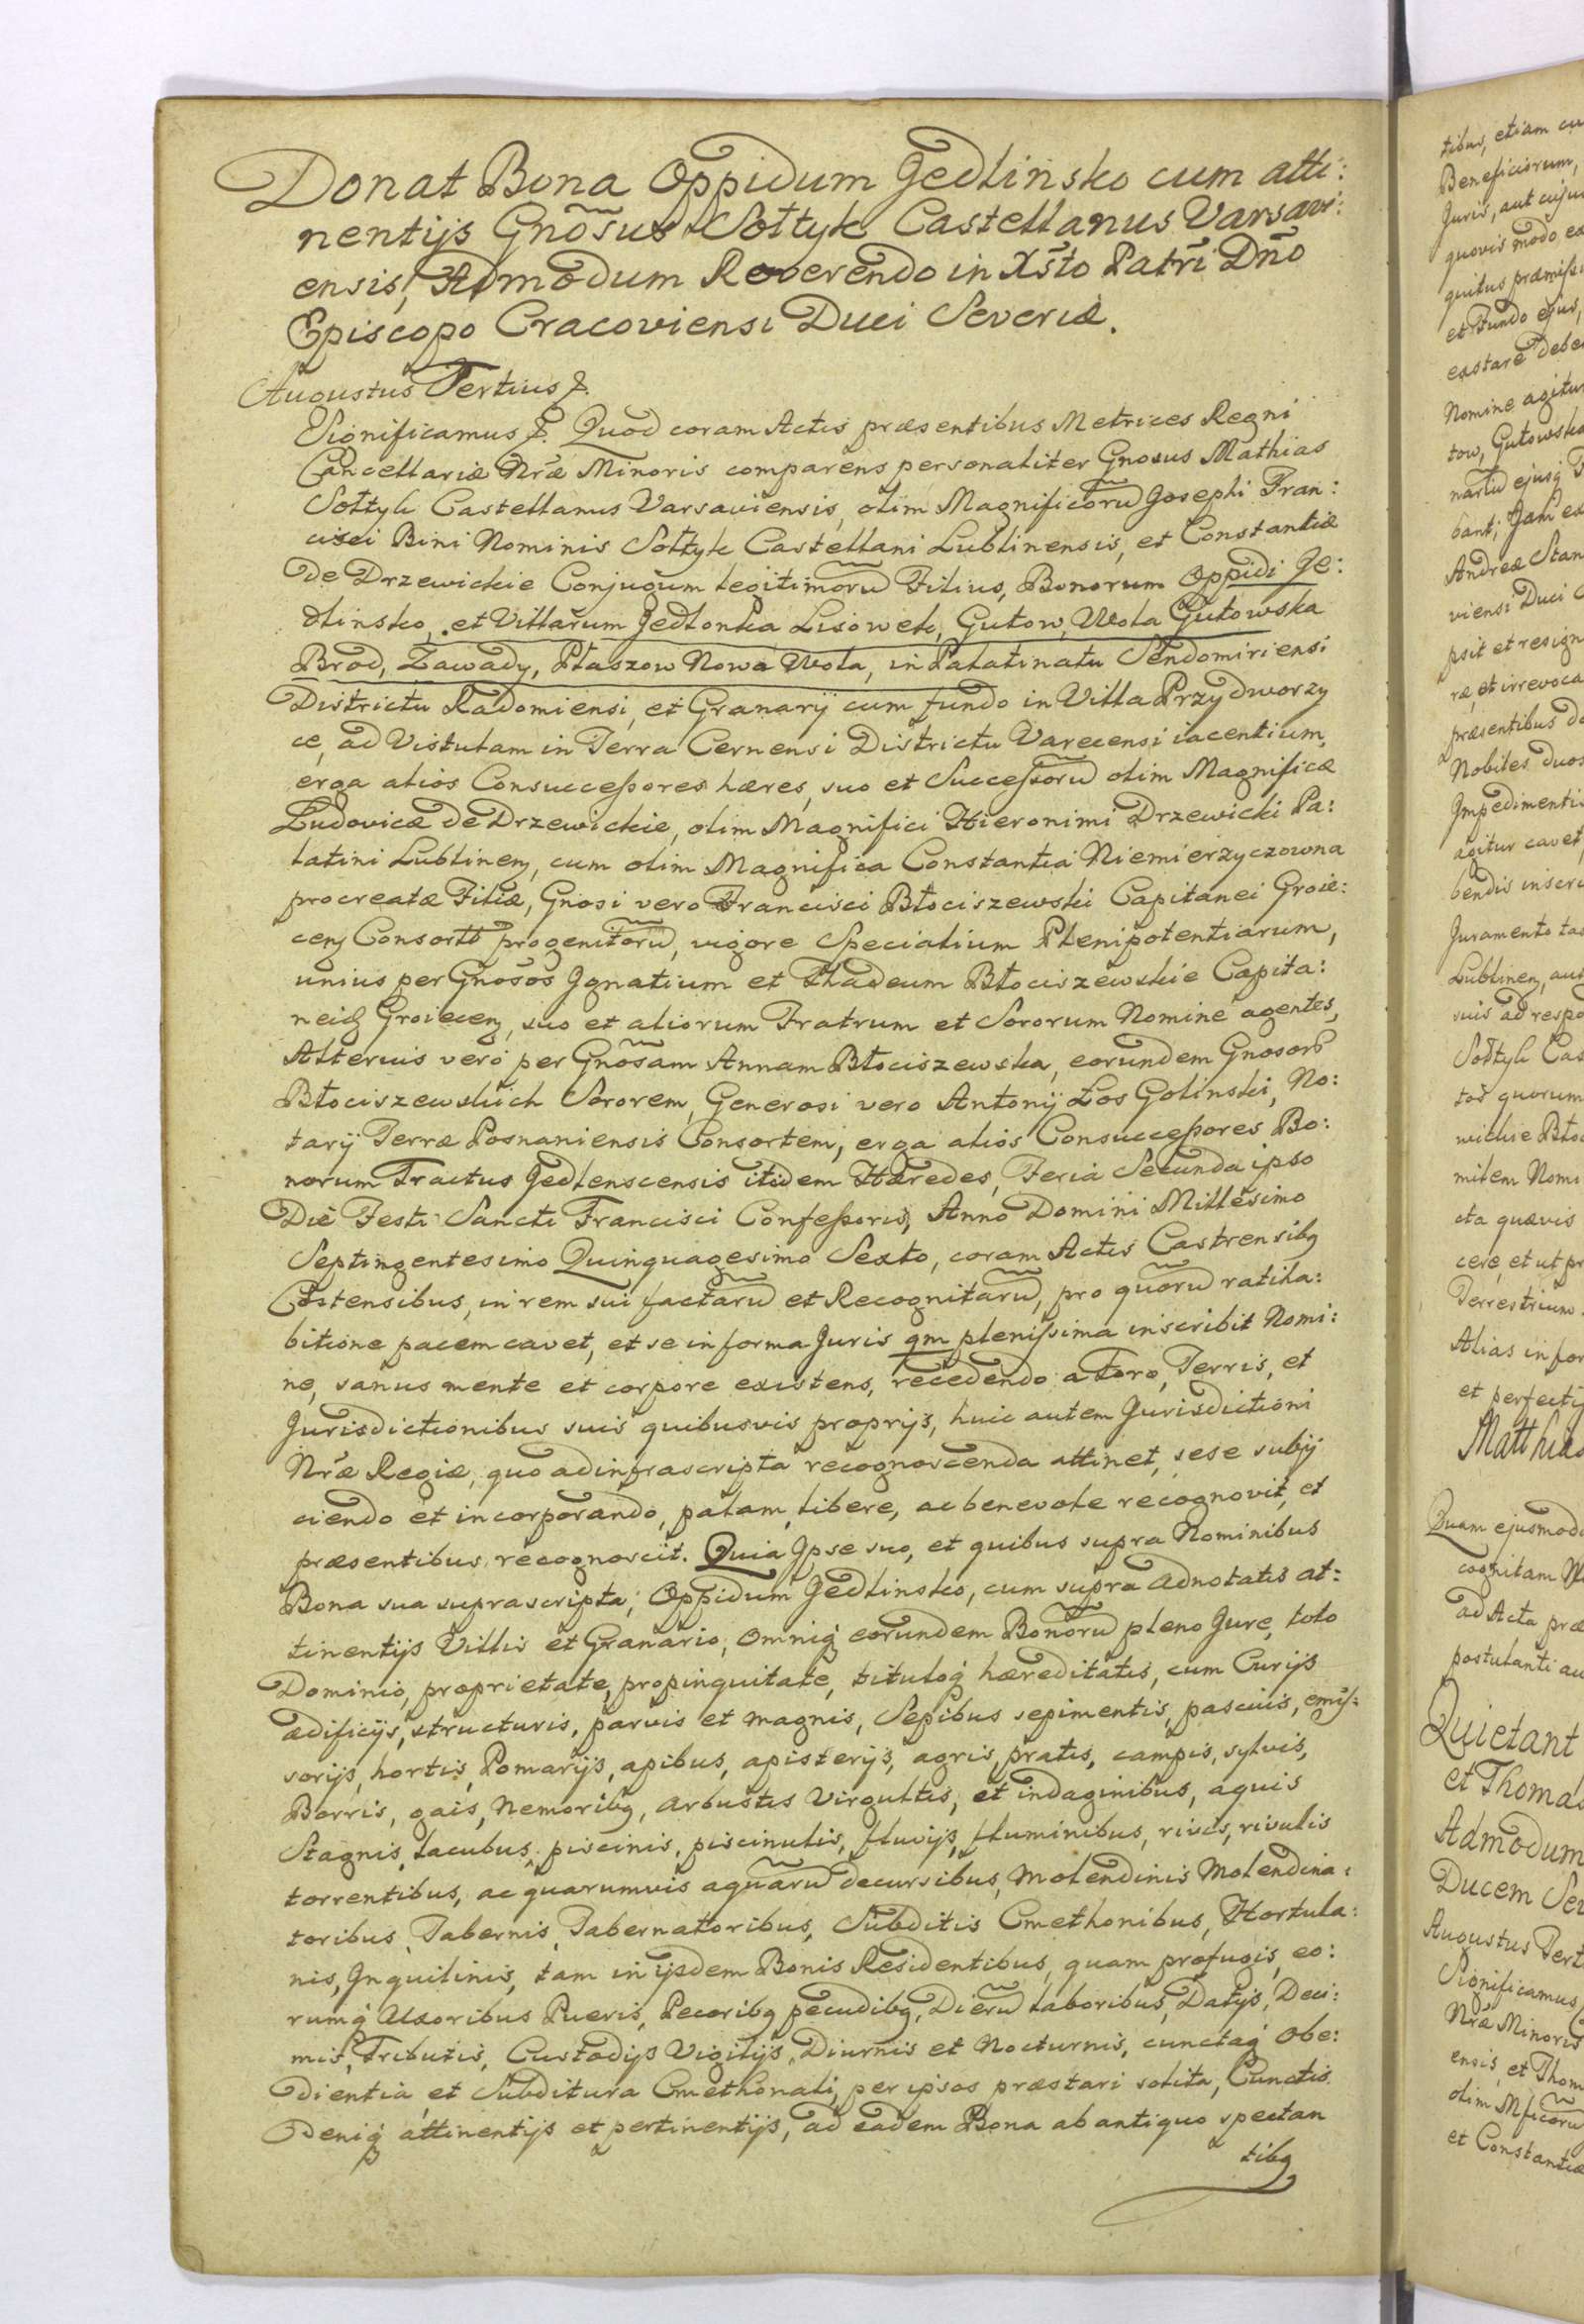 Donat Bona Oppidum Jedlinsko cum atti:
nentijs Gnosus Sołtyk Castellanus Varsavi:
ensis, Admodum Reverendo in Xsto Patri Dno
Episcopo Cracoviensi Duci Severiæ.
Augustus Tertius &.
Significamus &. Quod coram Actis præsentibus Metrices Regni
Cancellariæ Nræ Minoris comparens personaliter Gnosus Mathias
Sołtyk Castellanus Varsaviensis, olim Magnificoru Josephi Fran:
cisci Bini Nominis Sołtyk Castellani Lublinensis, et Constantiæ
de Drzewickie Conjugum legitimoru Filius, Bonorum Oppidi Je:
dlinsko, et Villarum Jedlonka Lisowek, Gutow, Wola Gutowska
Brod, Zawady, Płaszow Nowa Wola, in Palatinatu Sendomiriensi
Districtu Radomiensi, et Granarij cum fundo in Villa Przydworzy
ce, ad Vistulam in Terra Cernensi Districtu Varecensi iacentium,
erga alios Consuccessores hæres, suo et Successoru olim Magnificæ
Ludovicæ de Drzewickie, olim Magnifici Hieronimi Drzewicki Pa:
latini Lublinen, cum olim Magnifica Constantia Niemierzyczowna
procreatæ Filiæ, Gnosi vero Francisci Błociszewski Capitanei Groie:
cen Consortis progenitoru, vigore Specialium Plenipotentiarum,
unius per Gnosos Ignatium et Thadeum Błociszewskie Capita:
neid Groiecen, suo et aliorum Fratrum et Sororum Nomine agentes,
Alterius vero per Gnosam Annam Błociszewska, eorundem Gnosor
Błociszewskich Sororem, Generosi vero Antonij Łos Golinski, No:
tarij Terræ Posnaniensis Consortem, erga alios Consuccessores Bo:
norum Tractus Jedlenscensis itidem Hæredes, Feria Secunda ipso
Die Festi Sancti Francisci Confessoris, Anno Domini Millesimo
Septingentesimo Quinquagesimo Sexto, coram Actis Castrensibq
Costensibus, in rem sui factaru et Recognitaru, pro quoru ratiha:
bitione pacem cavet, et se in forma Juris qm plenissima inscribit Nomi:
ne, sanus mente et corpore existens, recedendo a Foro, Terris, et
Jurisdictionibus suis quibusvis proprijs, huic autem Jurisdictioni
Nræ Regiæ, quo ad infrascripta recognoscenda attinet, sese subij
ciendo et incorporando, palam, libere, ac benevole recognovit, et
præsentibus recognoscit. Quia Ipse suo, et quibus supra Nominibus
Bona sua suprascripta; Oppidum Jedlinsko, cum supra adnotatis at:
tinentijs Villis et Granario, omniq eorundem Bonoru pleno Jure, toto
Dominio, proprietate, propinquitate, tituloq hæreditatis, cum Curijs
ædificijs, structuris, parvis et magnis, Sepibus sepimentis, pascuis, emis:
sorijs, hortis, Pomarijs, apibus, apisterijs, agris, pratis, campis, sylvis,
Borris, gais, Nemoribq, arbustis Virgultis, et indaginibus, aquis
Stagnis, lacubus, piscinis, piscinulis, fluvijs, fluminibus, rivis, rivulis
torrentibus, ac quarumvis aquaru decursibus, Molendinis Molendina:
toribus, Tabernis, Tabernatoribus, Subditis Cmethonibus, Hortula:
nis, Inquilinis, tam in ijsdem Bonis Residentibus, quam profugis, eo:
rumq Uxoribus Pueris, Pecoribq pecudibq, Dieru laboribus, Datijs, Deci:
mis, Tributis, Custodijs Vigilijs, Diurnis et Nocturnis, cunctaq obe:
dientia et Subditura Cmethonali, per ipsos præstari solita, Cunctis
deniq attinentijs et pertinentijs, ad eadem Bona ab antiquo spectan
tibq
tibus, etiam
Beneficiorum,
Juris, aut
quovis modo
et Fundo ejus,
exstare
Nomine agitur
tow, Gutowska
Andreæ
viensi Duci
psit et
præsentibus
Nobiles duos
Impedimenti
agitur cavet
bendis
Juramento
Lublinen,
suis ad
tos quorum
mitem
cta quævis
cere, et ut
Terrestrium
Alias in
et
Matthias
Quam
cognitam
ad Acta
postulanti
Quietant
et Thomas
Admodum
Ducem
Augustus
Significamus
Nræ Minoris
ensis, et
olim
et Constantiæ